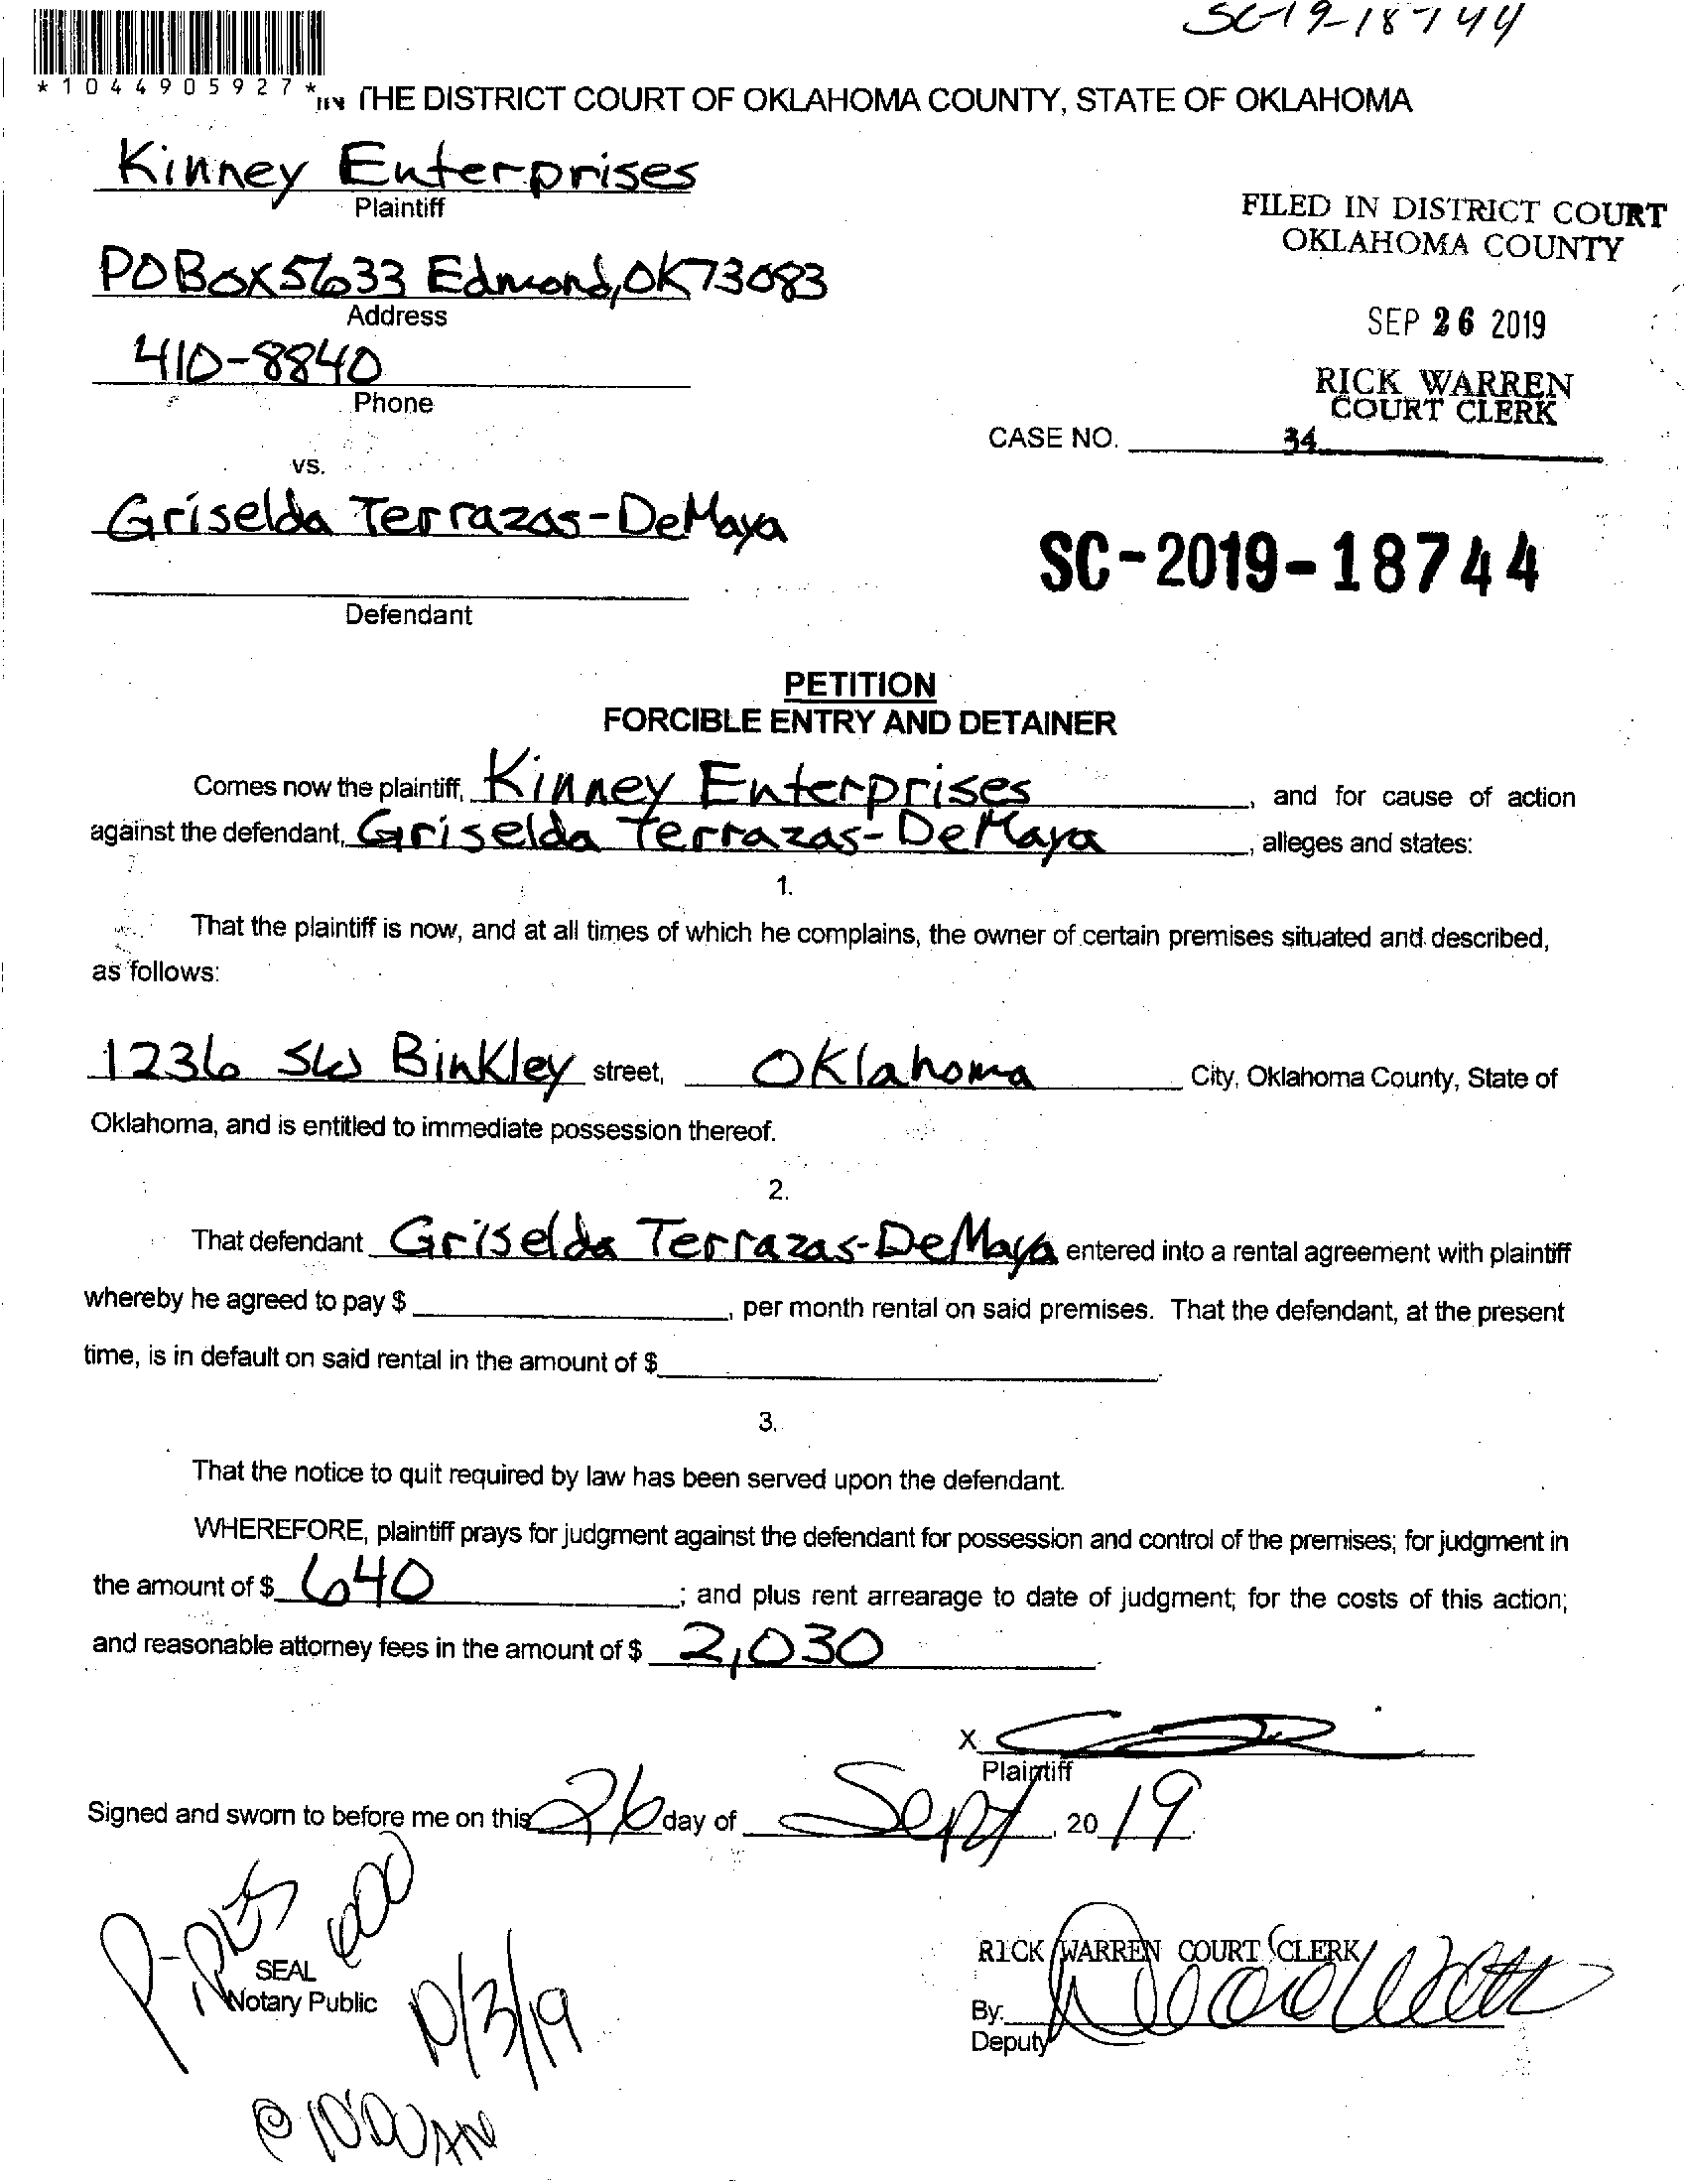 SC-19-18744
*1044905927*
IN THE DISTRICT COURT OF OKLAHOMA COUNTY, STATE OF OKLAHOMA
Kinney Enterprises
Plaintiff
FILED IN DISTRICT COURT
OKLAHOMA COUNTY
PO Box 5633 Edmond, OK 73083
Address
SEP 26 2019
410-8840
Phone
RICK WARREN
COURT CLERK
CASE NO.
34
vs.
Griselda Terrazas-DeMaya
SC-2019-18744
Defendant
PETITION
FORCIBLE ENTRY AND DETAINER
Comes now the plaintiff, Kinney Enterprises, and for cause of action
against the defendant, Griselda Terrazas-DeMaya, alleges and states:
1.
That the plaintiff is now, and at all times of which he complains, the owner of certain premises situated and described,
as follows:
1236 SW Binkley street, Oklahoma City, Oklahoma County, State of
Oklahoma, and is entitled to immediate possession thereof.
2.
That defendant Griselda Terrazas-DeMaya entered into a rental agreement with plaintiff
whereby he agreed to pay $, per month rental on said premises. That the defendant, at the present
time, is in default on said rental in the amount of $.
3.
That the notice to quit required by law has been served upon the defendant.
WHEREFORE, plaintiff prays for judgment against the defendant for possession and control of the premises; for judgment in
the amount of $ 640; and plus rent arrearage to date of judgment; for the costs of this action;
and reasonable attorney fees in the amount of $ 2,030.
X
Plaintiff
Signed and sworn to before me on this 26 day of Sept, 2019.
SEAL
Notary Public
RICK WARREN COURT CLERK
By:
Deputy
10/3/19
@ 10:00 AM